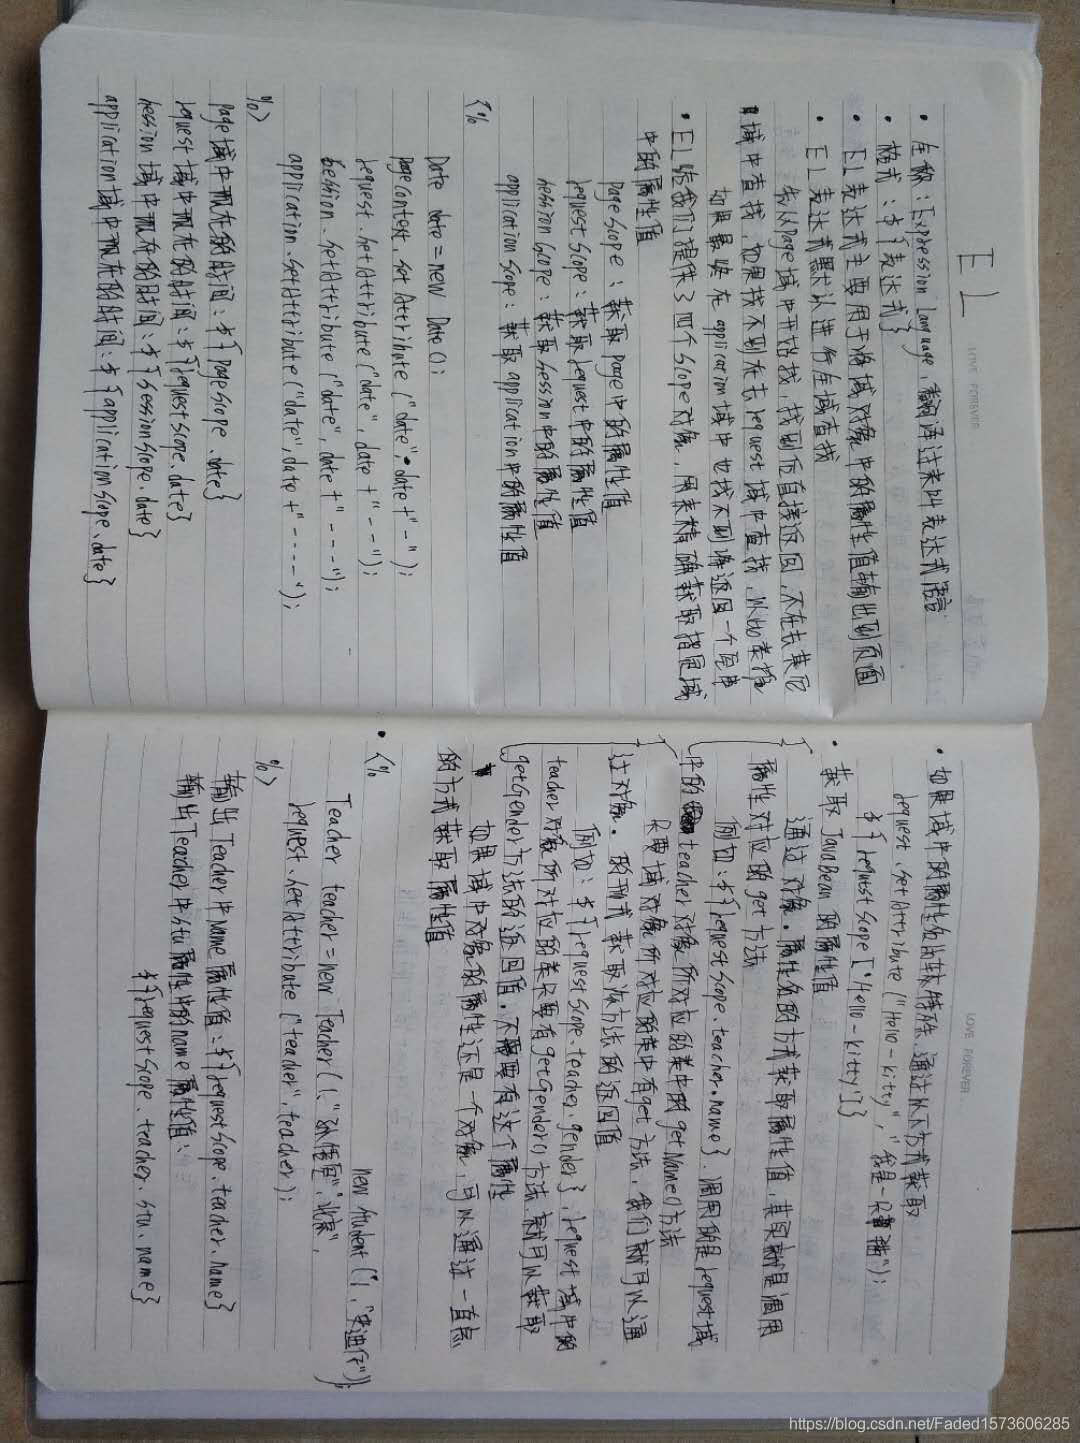 LOVE FOREVER
EL
• 全称：Expression Language，翻译过来叫表达式语言
• 格式：${表达式}
• EL表达式主要用于将域对象中的属性值输出到页面
• EL表达式默认进行全域查找
先从page域中开始找，找到后直接返回，不在去其它
域中查找，如果找不到在去request域中查找，以此类推
如果最终在application域中也找不到将返回一个空串
• EL给我们提供了四个Scope对象，用来精确获取指定域
中的属性值
pageScope：获取page中的属性值
requestScope：获取request中的属性值
sessionScope：获取session中的属性值
applicationScope：获取application中的属性值
<%
Date date = new Date();
pageContext.setAttribute("date", date+"-");
request.setAttribute("date", date+"--");
session.setAttribute("date", date+"---");
application.setAttribute("date", date+"----");
%>
page域中现在的时间：${pageScope.date}
request域中现在的时间：${requestScope.date}
session域中现在的时间：${sessionScope.date}
application域中现在的时间：${applicationScope.date}
LOVE FOREVER
• 如果域中的属性名比较特殊，通过以下方式获取
request.setAttribute("Hello-kitty", "我是一只猫");
${requestScope["Hello-kitty"]}
• 获取JavaBean的属性值
通过对象.属性名的方式获取属性值，其实就是调用
属性对应的get方法
例如：${requestScope.teacher.name}，调用的是request域
中的teacher对象所对应的类中的getName()方法
只要域对象所对应的类中有get方法，我们就可以通
过对象.的形式获取该方法的返回值
例如：${requestScope.teacher.gender}，request域中的
teacher对象所对应的类只要有getGender()方法，就可以获取
getGender方法的返回值，不需要有这个属性
如果域中对象的属性还是一个对象，可以通过一直点
的方式获取属性值
• <%
Teacher teacher = new Teacher(1,"孙悟空","北京",
new Student(1,"宋迪仔"));
request.setAttribute("teacher", teacher);
%>
输出Teacher中name属性值：${requestScope.teacher.name}
输出Teacher中stu属性中的name属性值：
${requestScope.teacher.stu.name}
https://blog.csdn.net/Faded1573606285